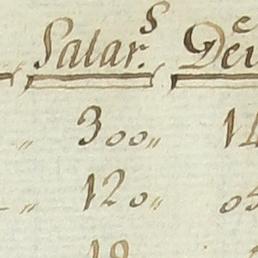 Salar.s De
„ 300„ 14
„ 120„ 05
18